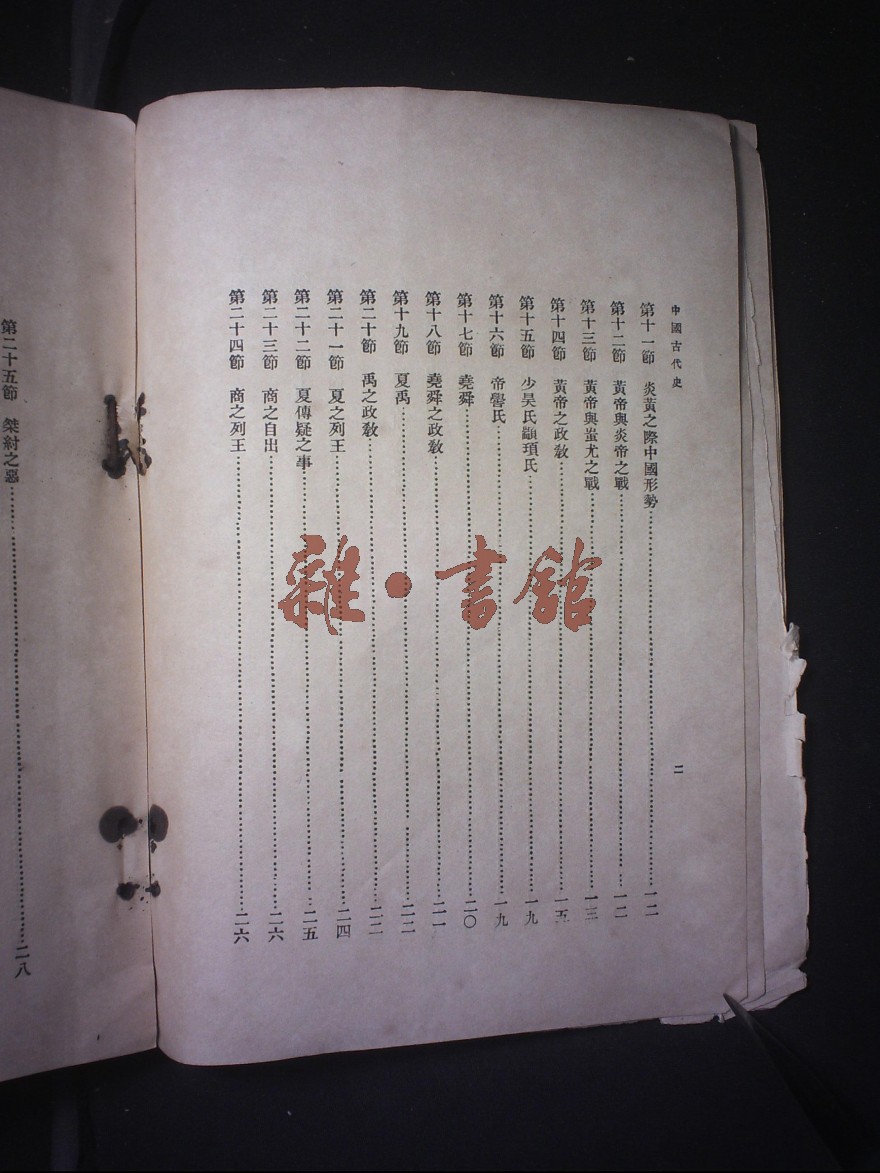 中國古代史
二
第十一節　炎黃之際中國形勢……一二
第十二節　黃帝與炎帝之戰……一二
第十三節　黃帝與蚩尤之戰……一三
第十四節　黃帝之政敎……一五
第十五節　少昊氏顓頊氏……一九
第十六節　帝嚳氏……一九
第十七節　堯舜……二〇
第十八節　堯舜之政敎……二一
第十九節　夏禹……二二
第二十節　禹之政敎……二二
第二十一節　夏之列王……二四
第二十二節　夏傳疑之事……二五
第二十三節　商之自出……二六
第二十四節　商之列王……二六
第二十五節　桀紂之惡……二八
雜·書館